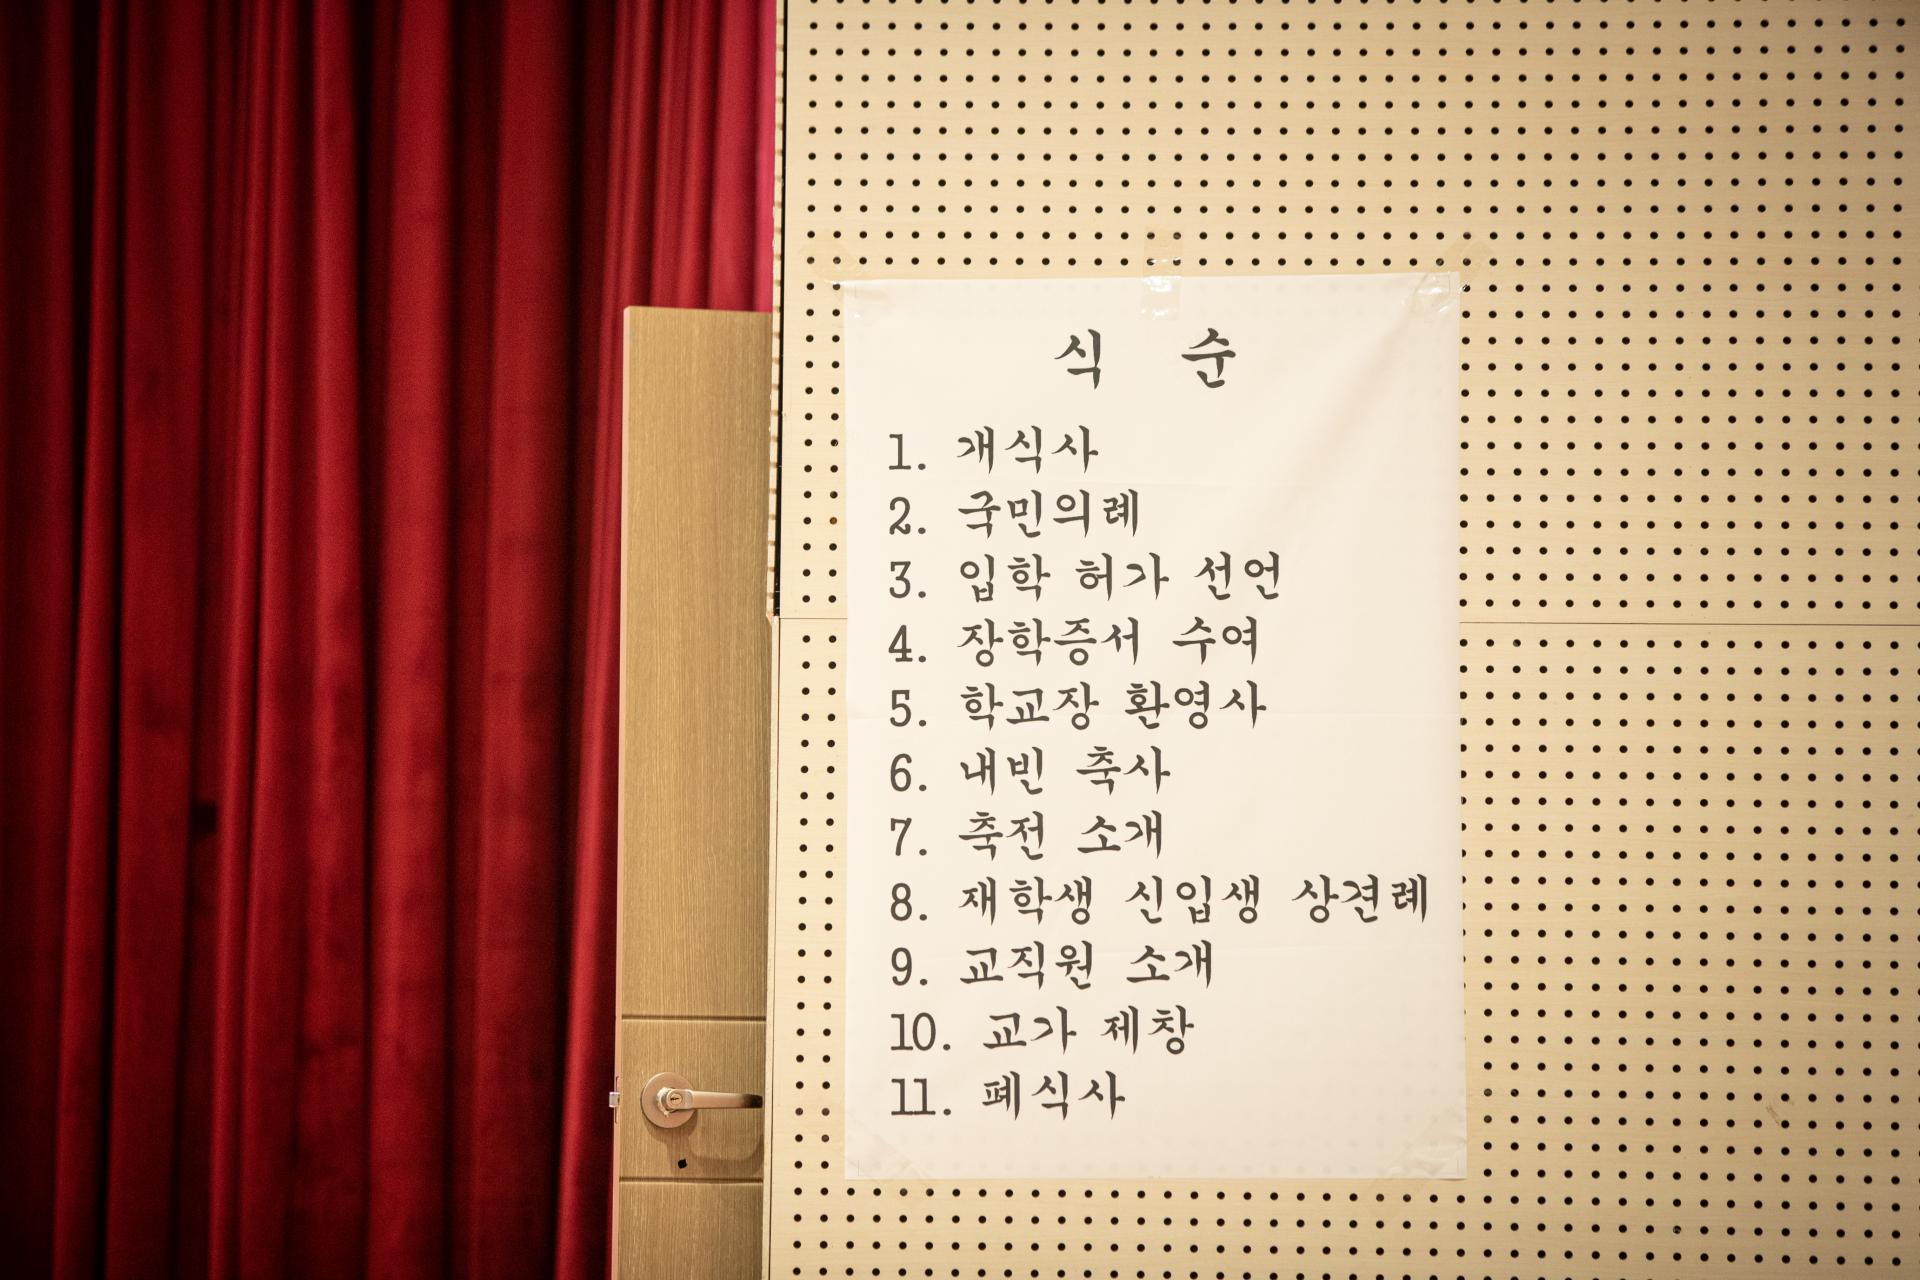 식 순
1. 개식사
2. 국민의례
3. 입학 허가 선언
4. 장학증서 수여
5. 학교장 환영사
6. 내빈 축사
7. 축전 소개
8. 재학생 신입생 상견례
9. 교직원 소개
10. 교가 제창
11. 폐식사